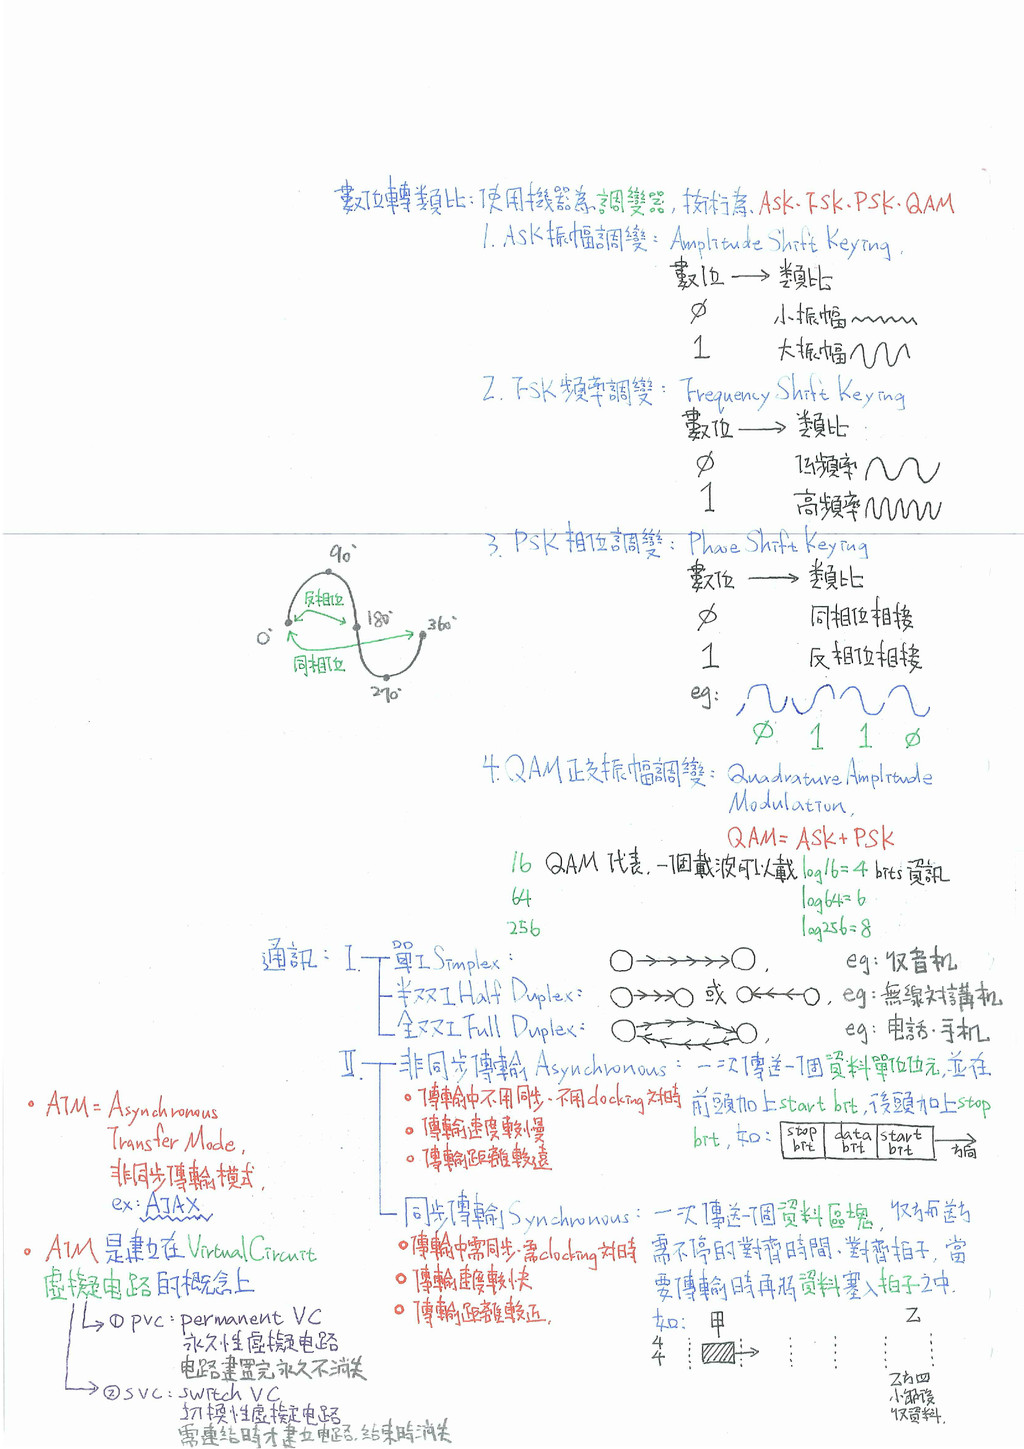 數位轉類比：使用機器為調變器，技術為 ASK、FSK、PSK、QAM
1. ASK振幅調變：Amplitude Shift Keying.
數位 → 類比
0 小振幅
1 大振幅
2. FSK頻率調變：Frequency Shift Keying
數位 → 類比
0 低頻率
1 高頻率
3. PSK相位調變：Phase Shift Keying
數位 → 類比
0 同相位相接
1 反相位相接
eg:
0 1 1 0
90°
反相位
0°
180°
360°
同相位
270°
4. QAM正交振幅調變：Quadrature Amplitude
Modulation,
QAM = ASK + PSK
16 QAM代表，一個載波可以載 log16=4 bits資訊
64 log64=6
256 log256=8
通訊：I. 單工Simplex： eg：收音机
半双工Half Duplex： 或 , eg：無線対講机
全双工Full Duplex： eg：电話、手机
II. 非同步傳輸 Asynchronous：一次傳送一個資料單位位元，並在
前頭加上start bit，後頭加上stop
bit，如： stop bit data bit start bit 方向
• 傳輸中不用同步、不用clocking対時
• 傳輸速度較慢
• 傳輸距離較遠
同步傳輸Synchronous：一次傳送一個資料區塊，收方与送方
需不停的對齊時間、對齊拍子，當
要傳輸時再將資料塞入拍子之中.
• 傳輸中需同步、需clocking対時
• 傳輸速度較快
• 傳輸距離較近.
如： 甲 乙
4
4
乙方四
小節後
收資料.
• ATM = Asynchronous
Transfer Mode,
非同步傳輸模式,
ex: AJAX
• ATM 是建立在Virtual Circuit
虛擬电路的概念上
① pvc: permanent VC
永久性虛擬电路
电路建置完永久不消失
② svc: switch VC
切換性虛擬电路
需連結時才建立电路，結束時消失